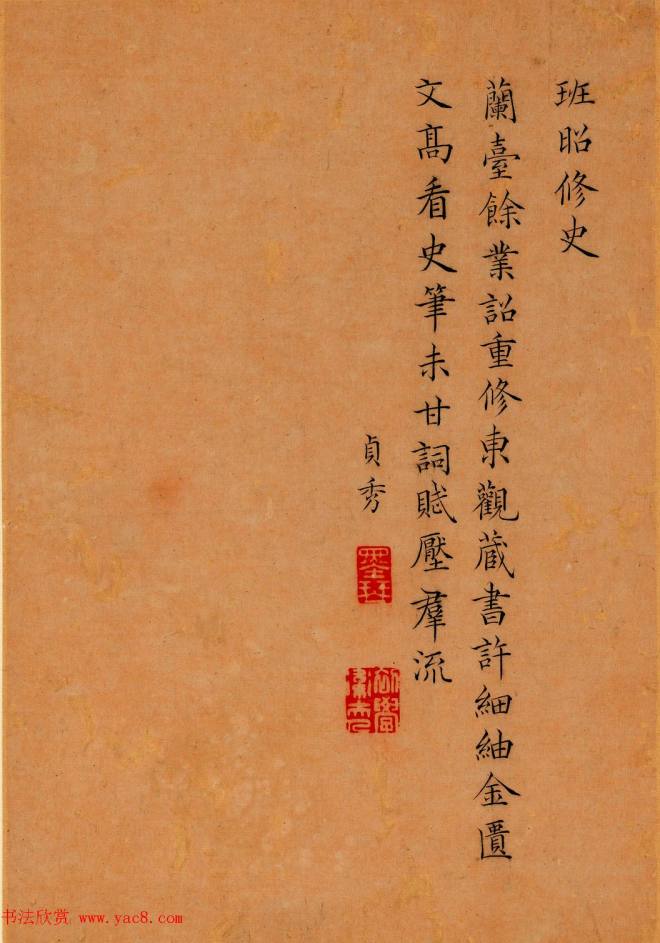 班昭修史
蘭臺餘業詔重修東觀蔵書許細紬金匱
文髙看史筆未甘詞賦壓羣流
貞秀
墨琴
书法欣赏 www.yac8.com